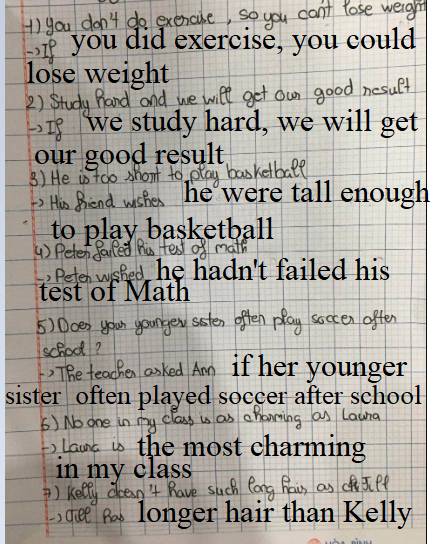 1) You don't do exercise, so you can't lose weight
-> If you did exercise, you could
lose weight
2) Study hard and we will get our good result
-> If we study hard, we will get
our good result
3) He is too short to play basketball
-> His friend wishes he were tall enough
to play basketball
4) Peter failed his test of math
-> Peter wished he hadn't failed his
test of Math
5) Does your younger sister often play soccer after
school?
-> The teacher asked Ann if her younger
sister often played soccer after school
6) No one in my class is as charming as Laura
-> Laura is the most charming
in my class
7) Kelly doesn't have such long hair as Jill
-> Jill has longer hair than Kelly